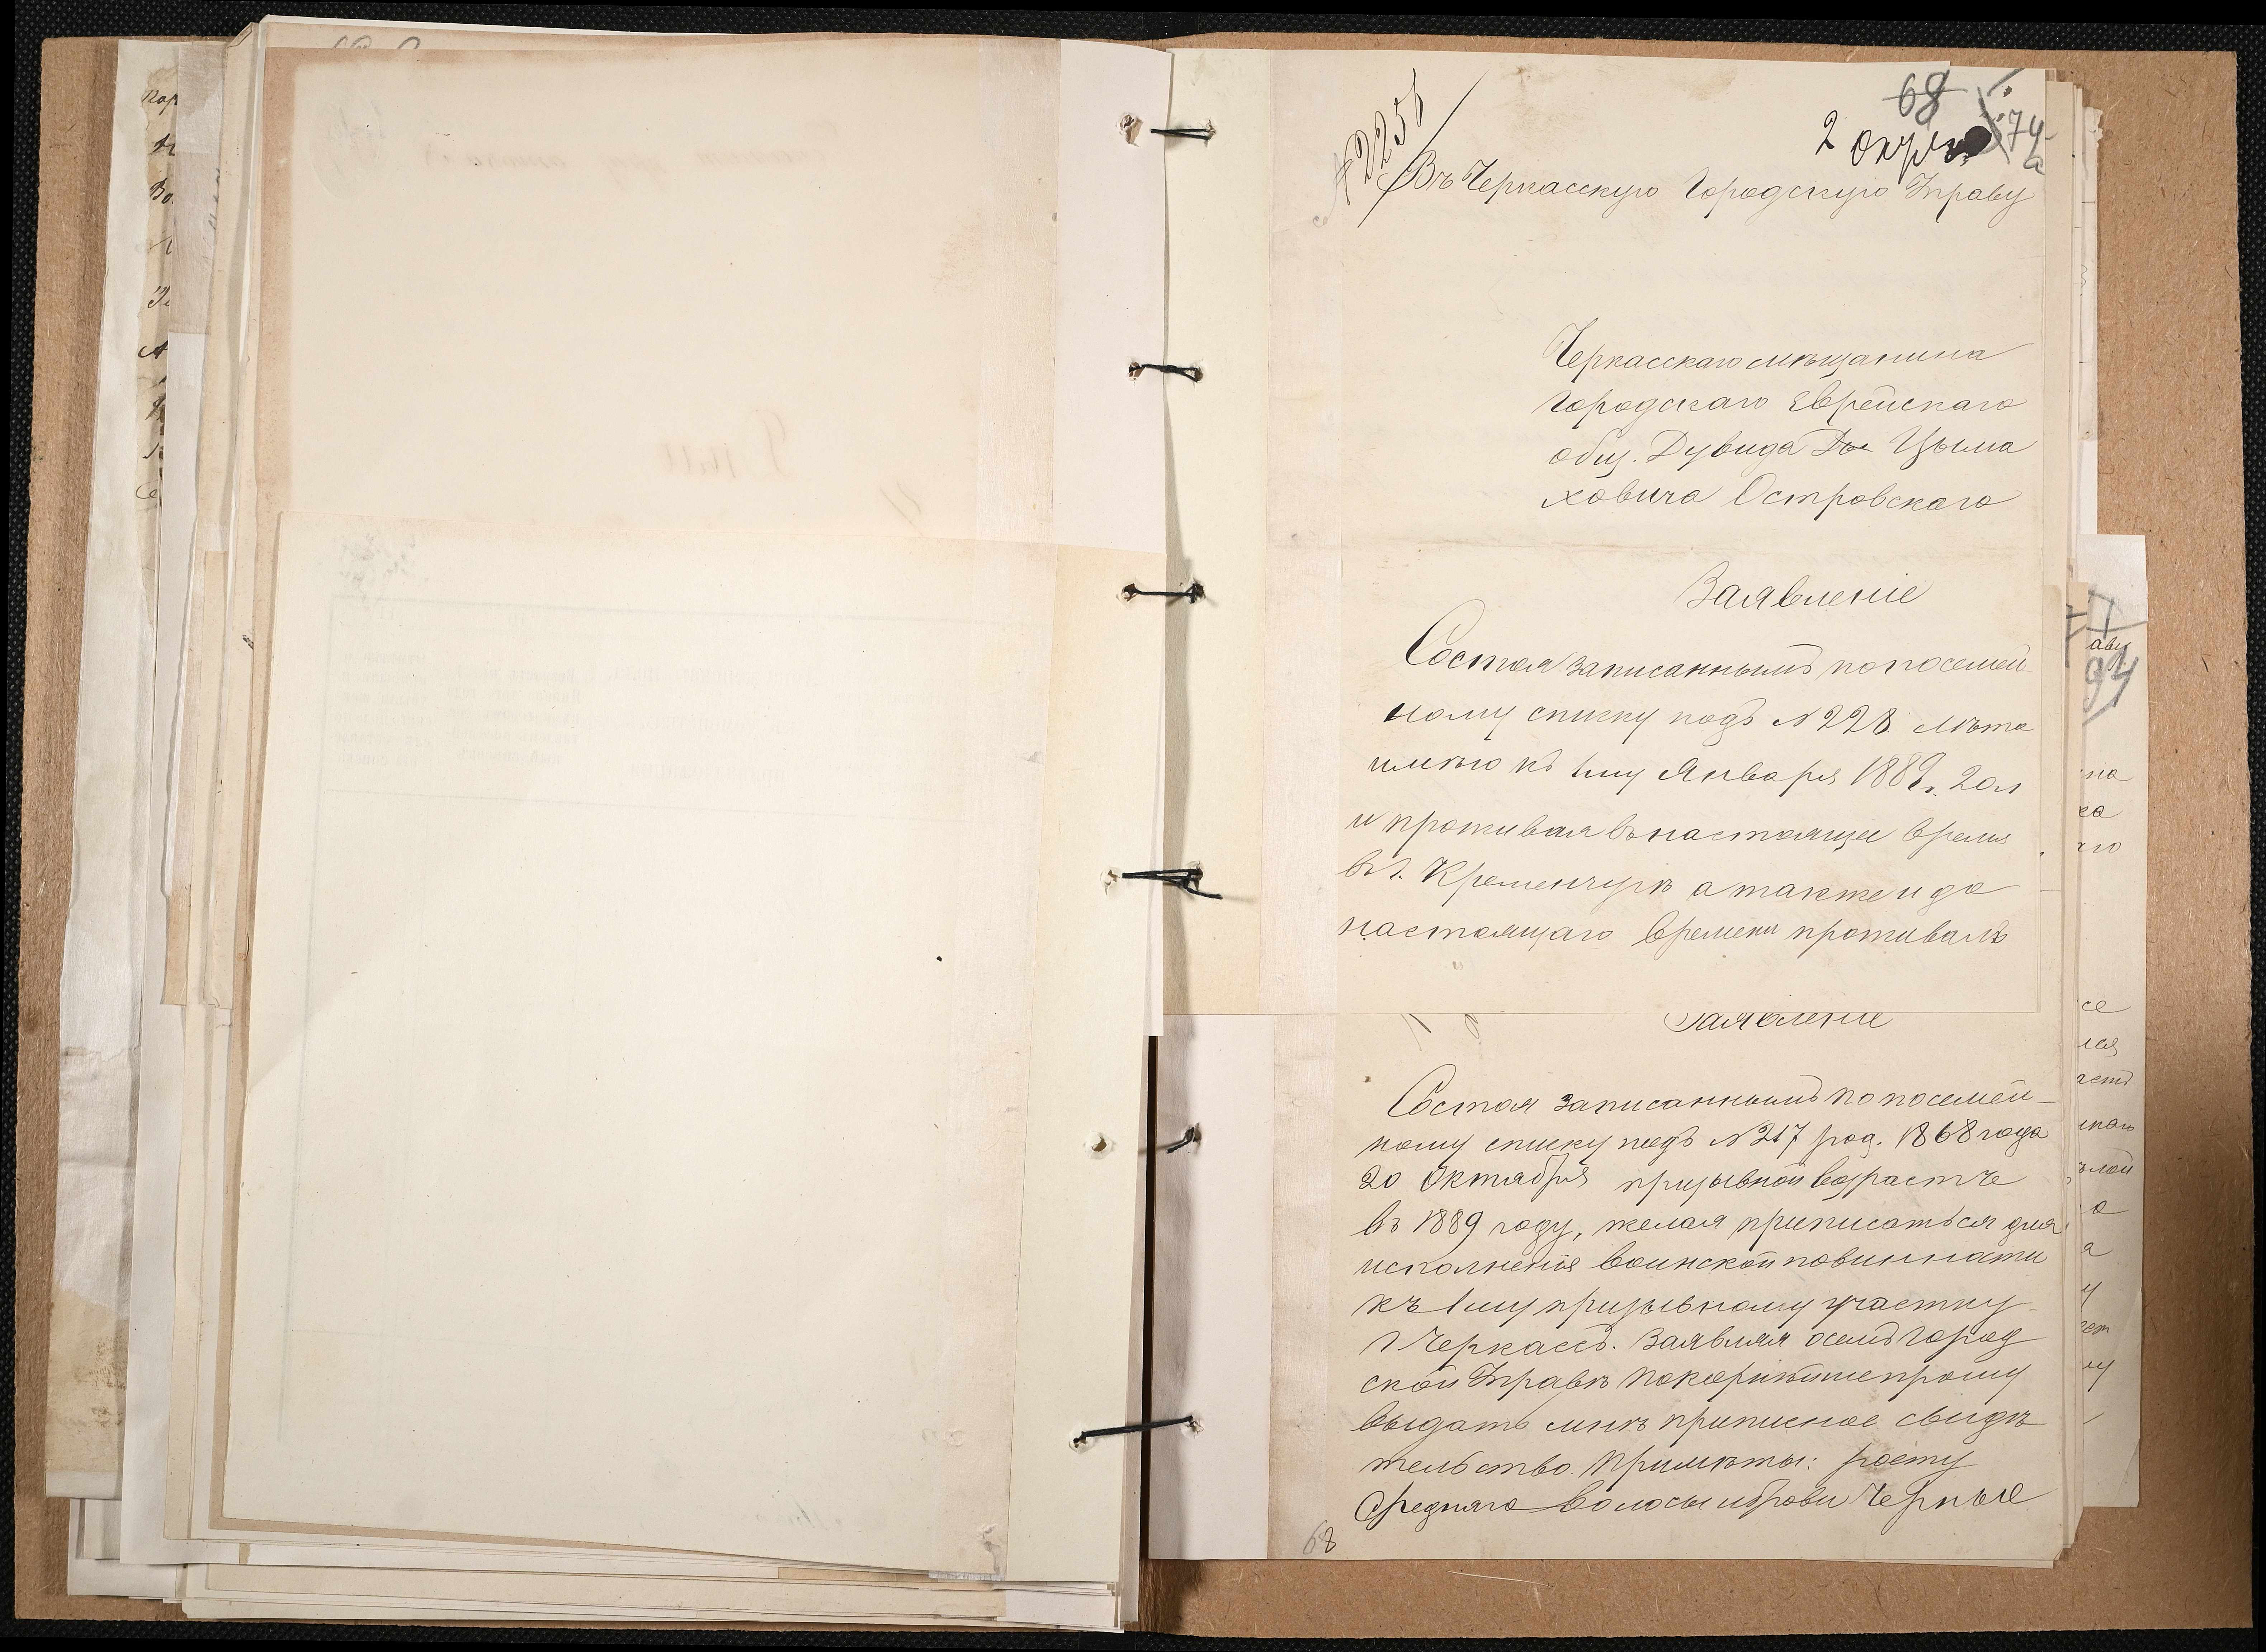 68
74
2 окр.
№ 2251
Въ Черкасскую Городскую Управу
Черкасскаго мѣщанина
городскаго Еврейскаго
общ. Дувида Цыма
ховича Островскаго
Заявленіе
Состоя записаннымъ по посемей
ному списку подъ № 228. Лѣта
имѣю къ 1му Января 1889г. 20 л
и проживая въ настоящее время
въ г. Кременчугѣ а также и до
настоящаго времени проживалъ
Заявленіе
Состоя записаннымъ по посемей-
ному списку подъ № 217 род. 1868 года
20 Октября призывной возрастъ
въ 1889 году, желая приписаться для
исполненія воинской повинности
къ 1му призывному участку
г Черкассъ. Заявляя о семъ Город
ской Управѣ покорнѣйше прошу
выдать мнѣ приписное свидѣ
тельство. Примѣты: росту
Средняго волосы и брови Черные
68
аву
94